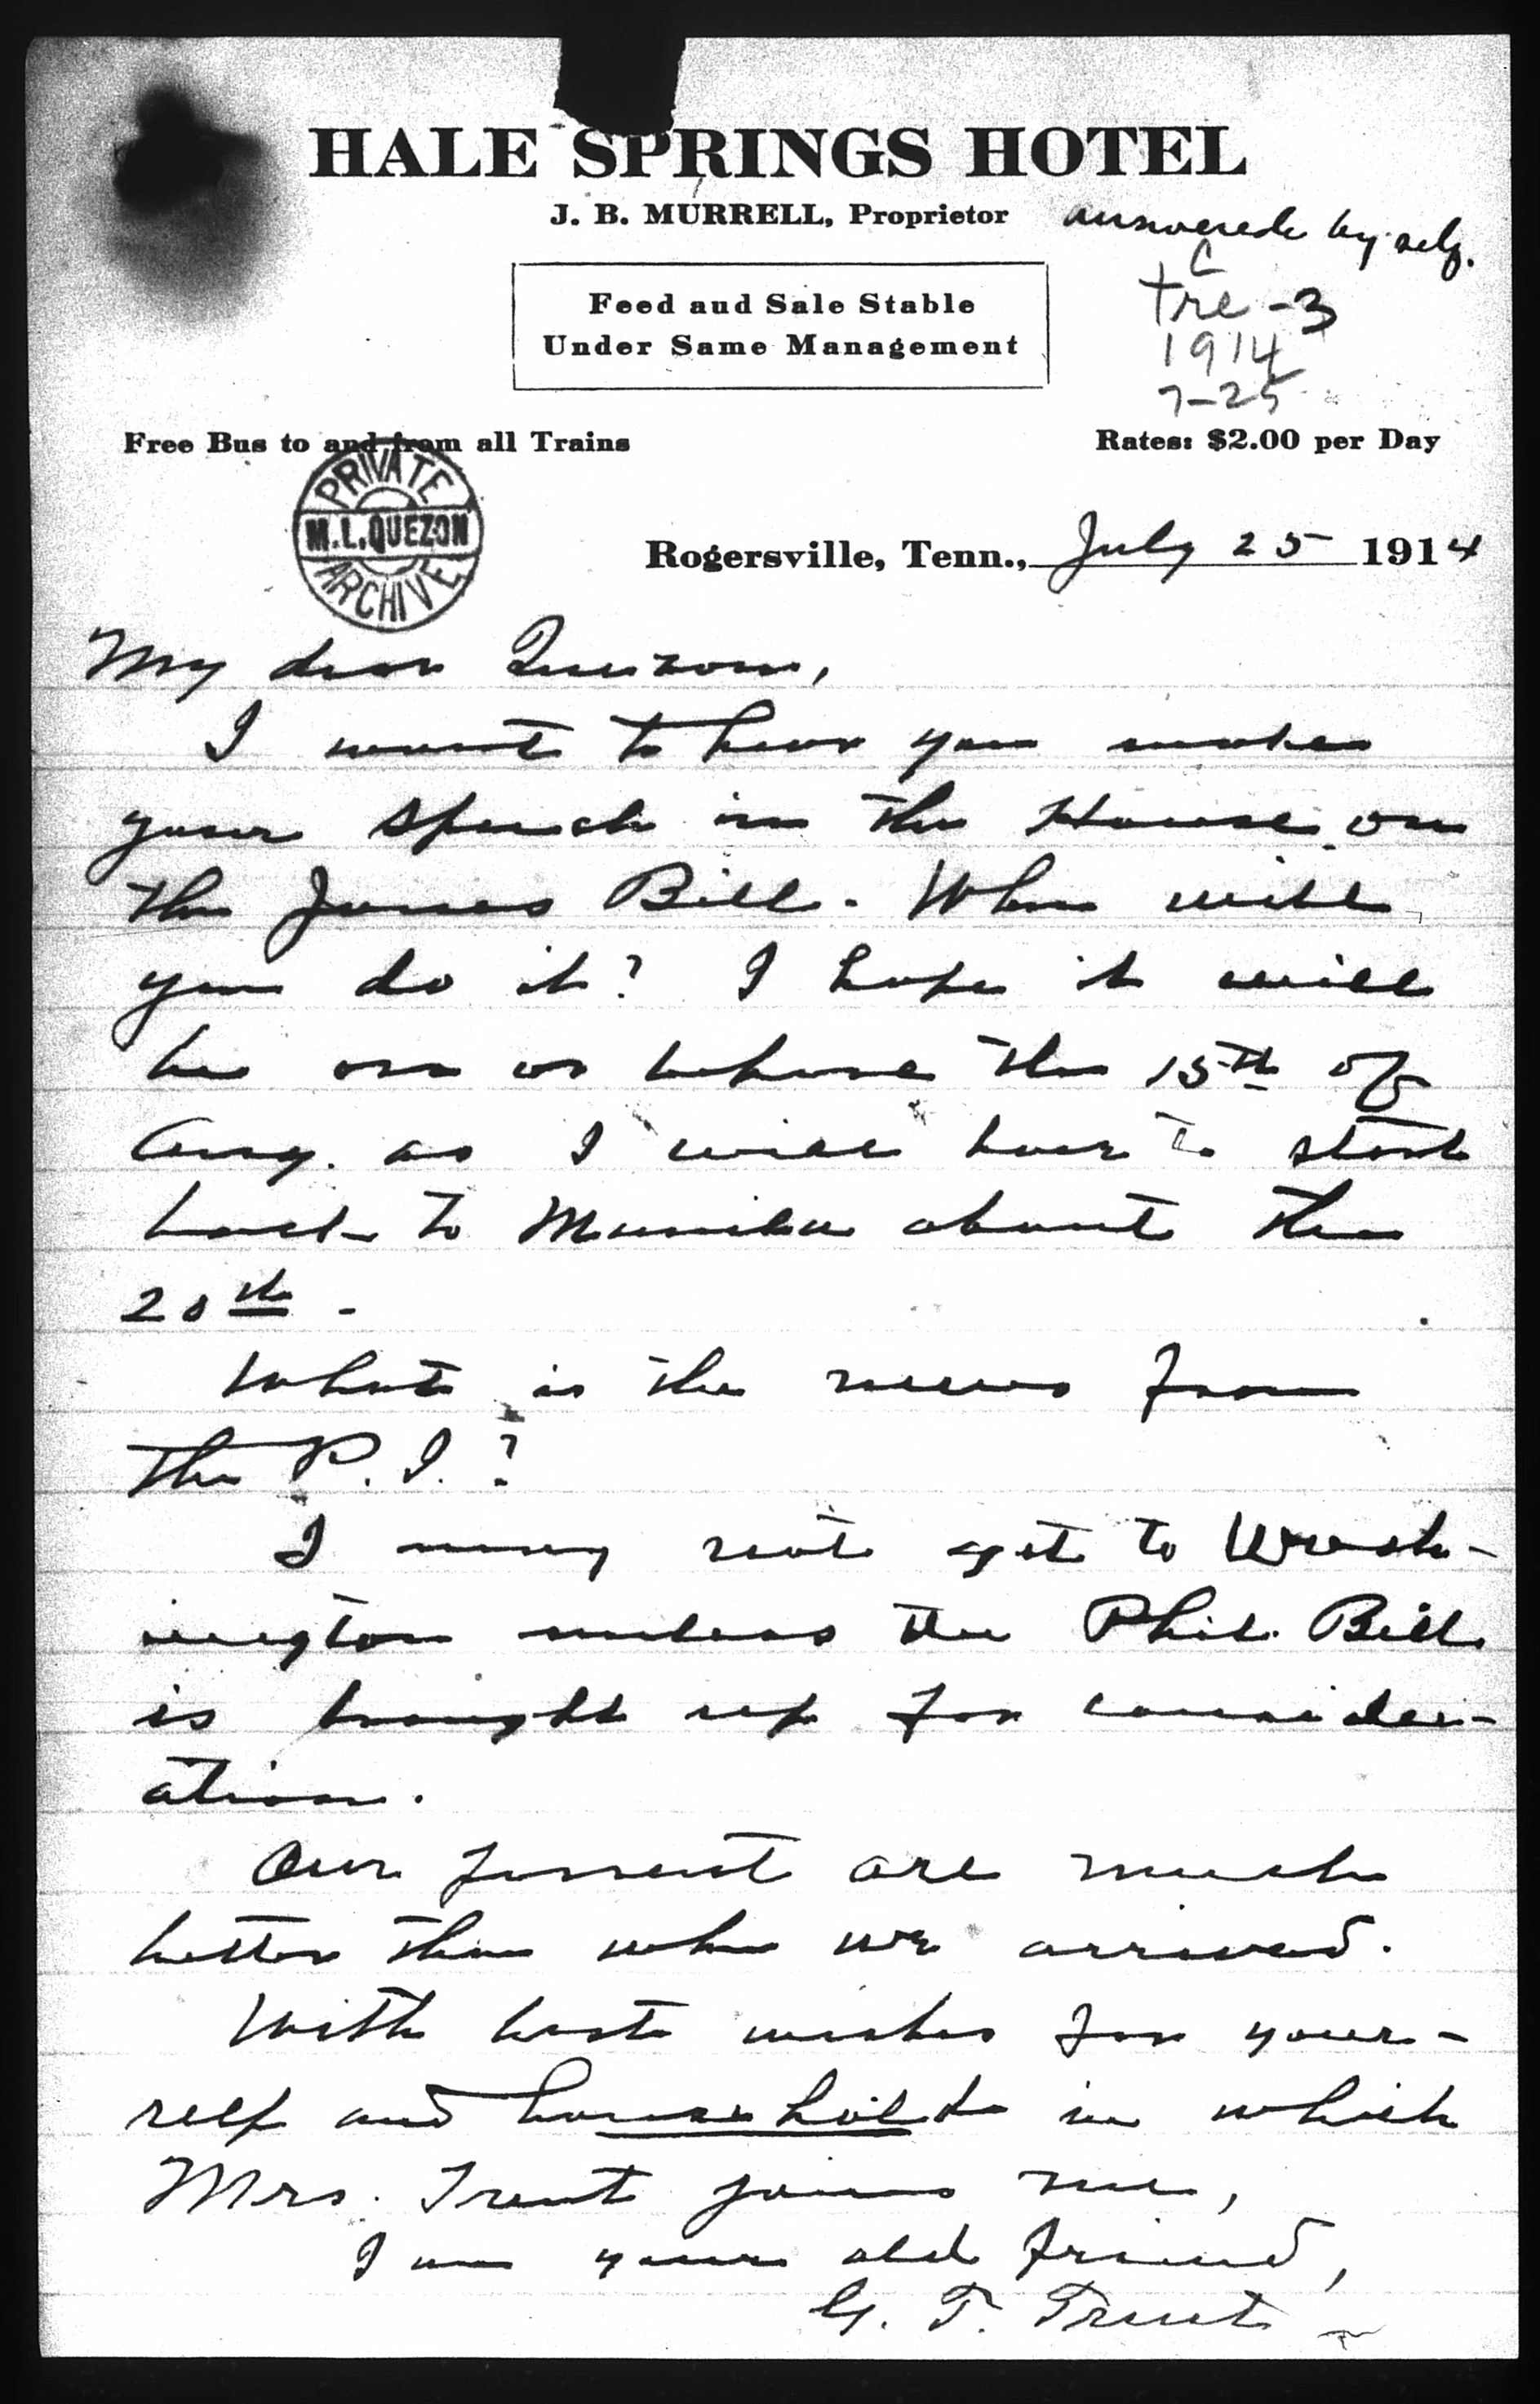 HALE SPRINGS HOTEL
J. B. MURRELL, Proprietor
answered by self.
Feed and Sale Stable
Under Same Management
C
Tre-3
1914
7-25
Free Bus to and from all Trains
Rates: $2.00 per Day
PRIVATE
M.L.QUEZON
ARCHIVE
Rogersville, Tenn., July 25 1914
My dear Quezon,
I want to hear you make
your speech in the House on
the Jones Bill. When will
you do it? I hope it will
be on or before the 15th of
Aug. as I will have to start
back to Manila about the
20th.
What is the news from
the P. I.?
I may not get to Wash-
ington unless the Phil. Bill
is brought up for consider-
ation.
Our are much
better than when we arrived.
With best wishes for your-
self and household in which
Mrs. Trent joins me,
I am your old friend,
G. T. Trent